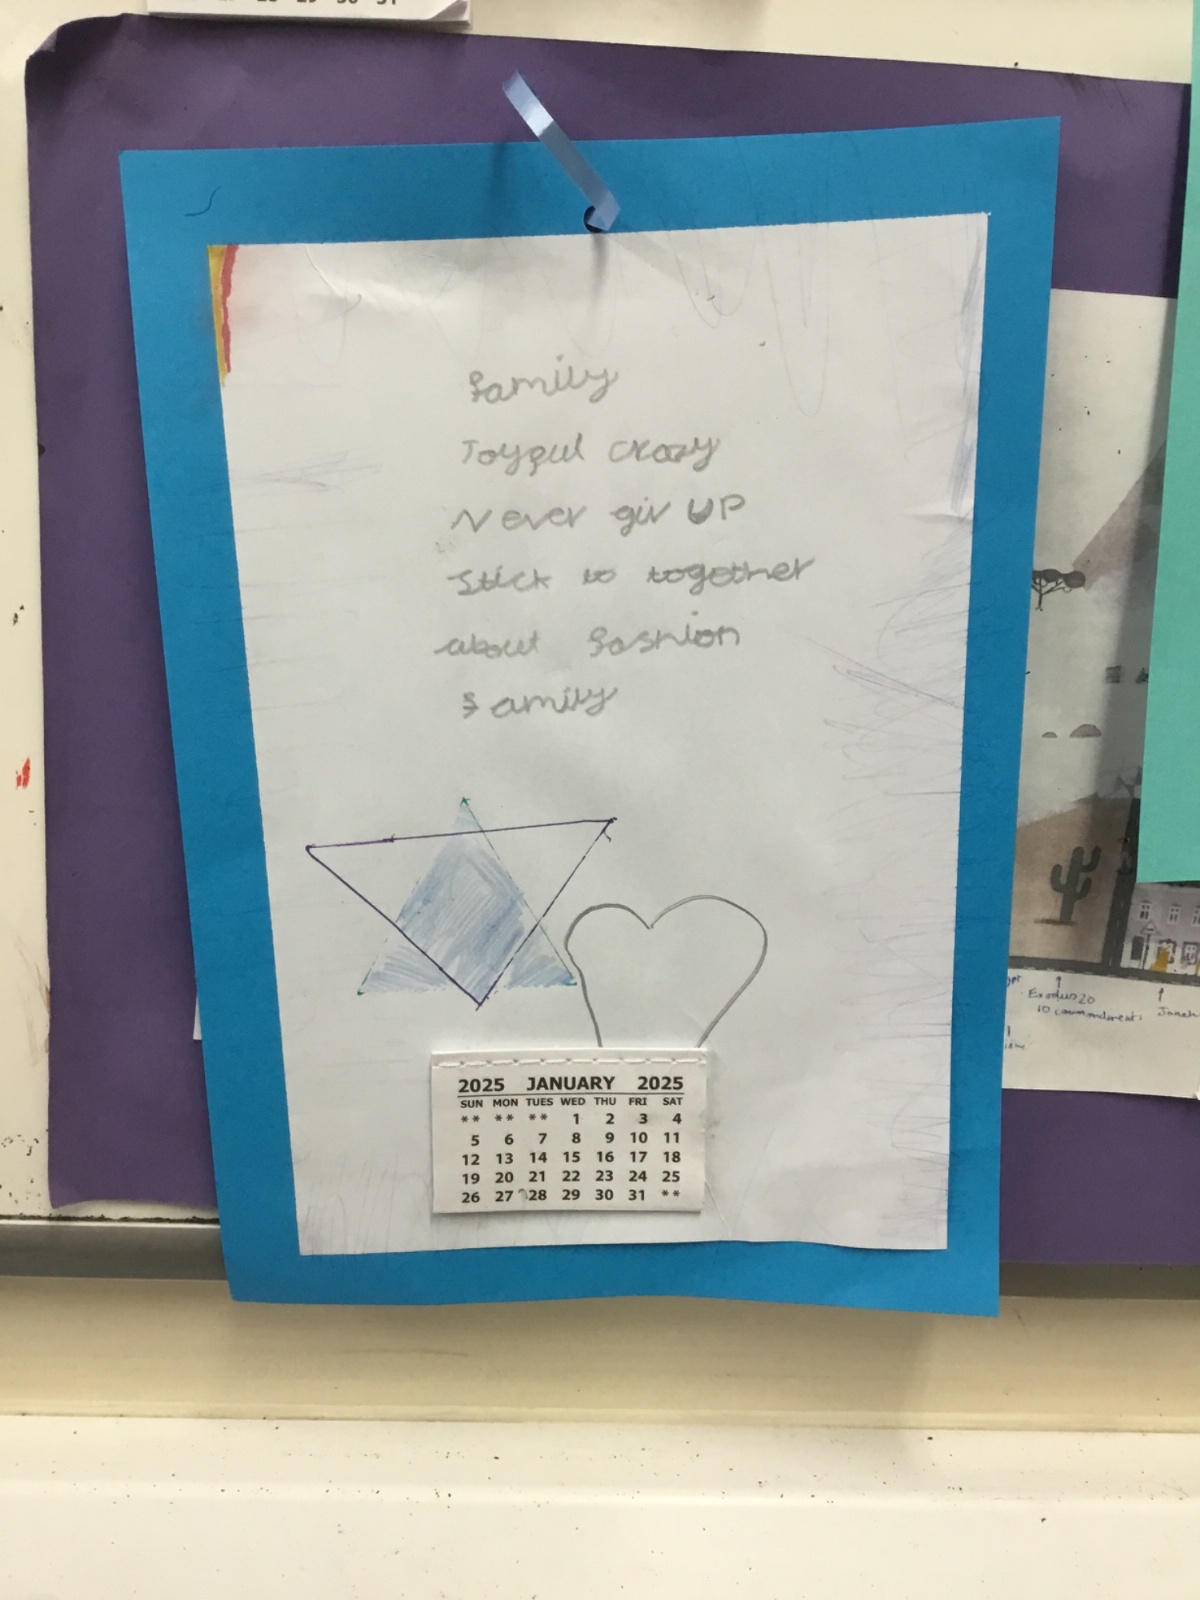 28 29 30 31
family
Joyful crazy
Never giv UP
Stick to together
about fashion
family
2025 JANUARY 2025
SUN MON TUES WED THU FRI SAT
** ** ** 1 2 3 4
5 6 7 8 9 10 11
12 13 14 15 16 17 18
19 20 21 22 23 24 25
26 27 28 29 30 31 **
Exodus 20
10 commandments